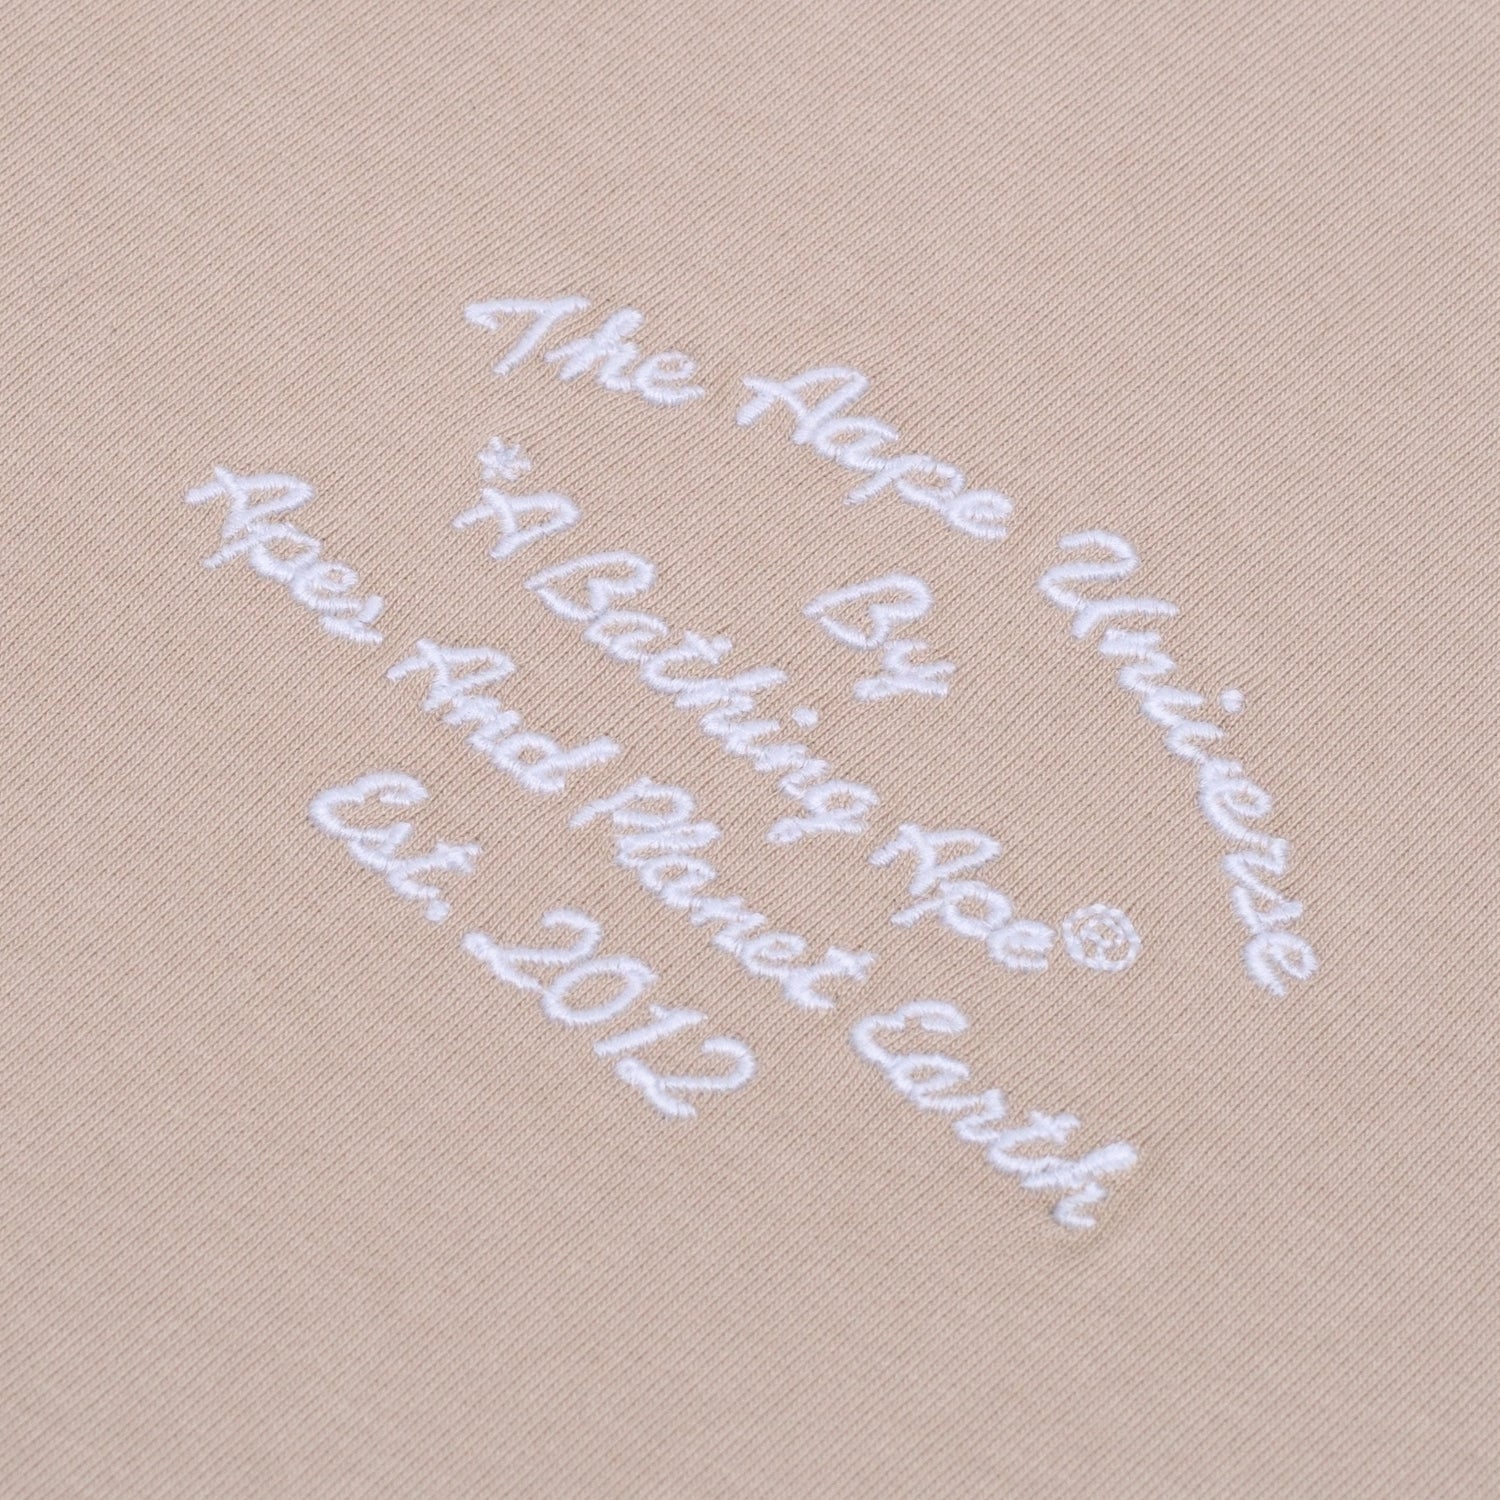 The Aape Universe
By
*A Bathing Ape®
Apes And Planet Earth
Est. 2012